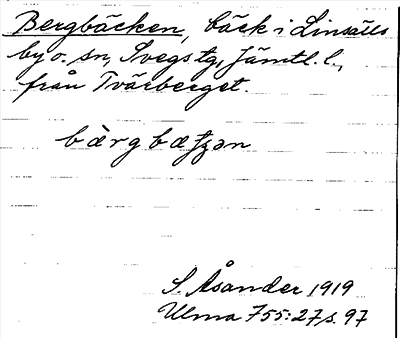 Bergbäcken, bäck i Linsälls
by o. sn, Svegs tg, Jämtl. l.,
från Tvärberget.
bàrgbætʒən
S. Åsander 1919
Ulma 755:27 s. 97